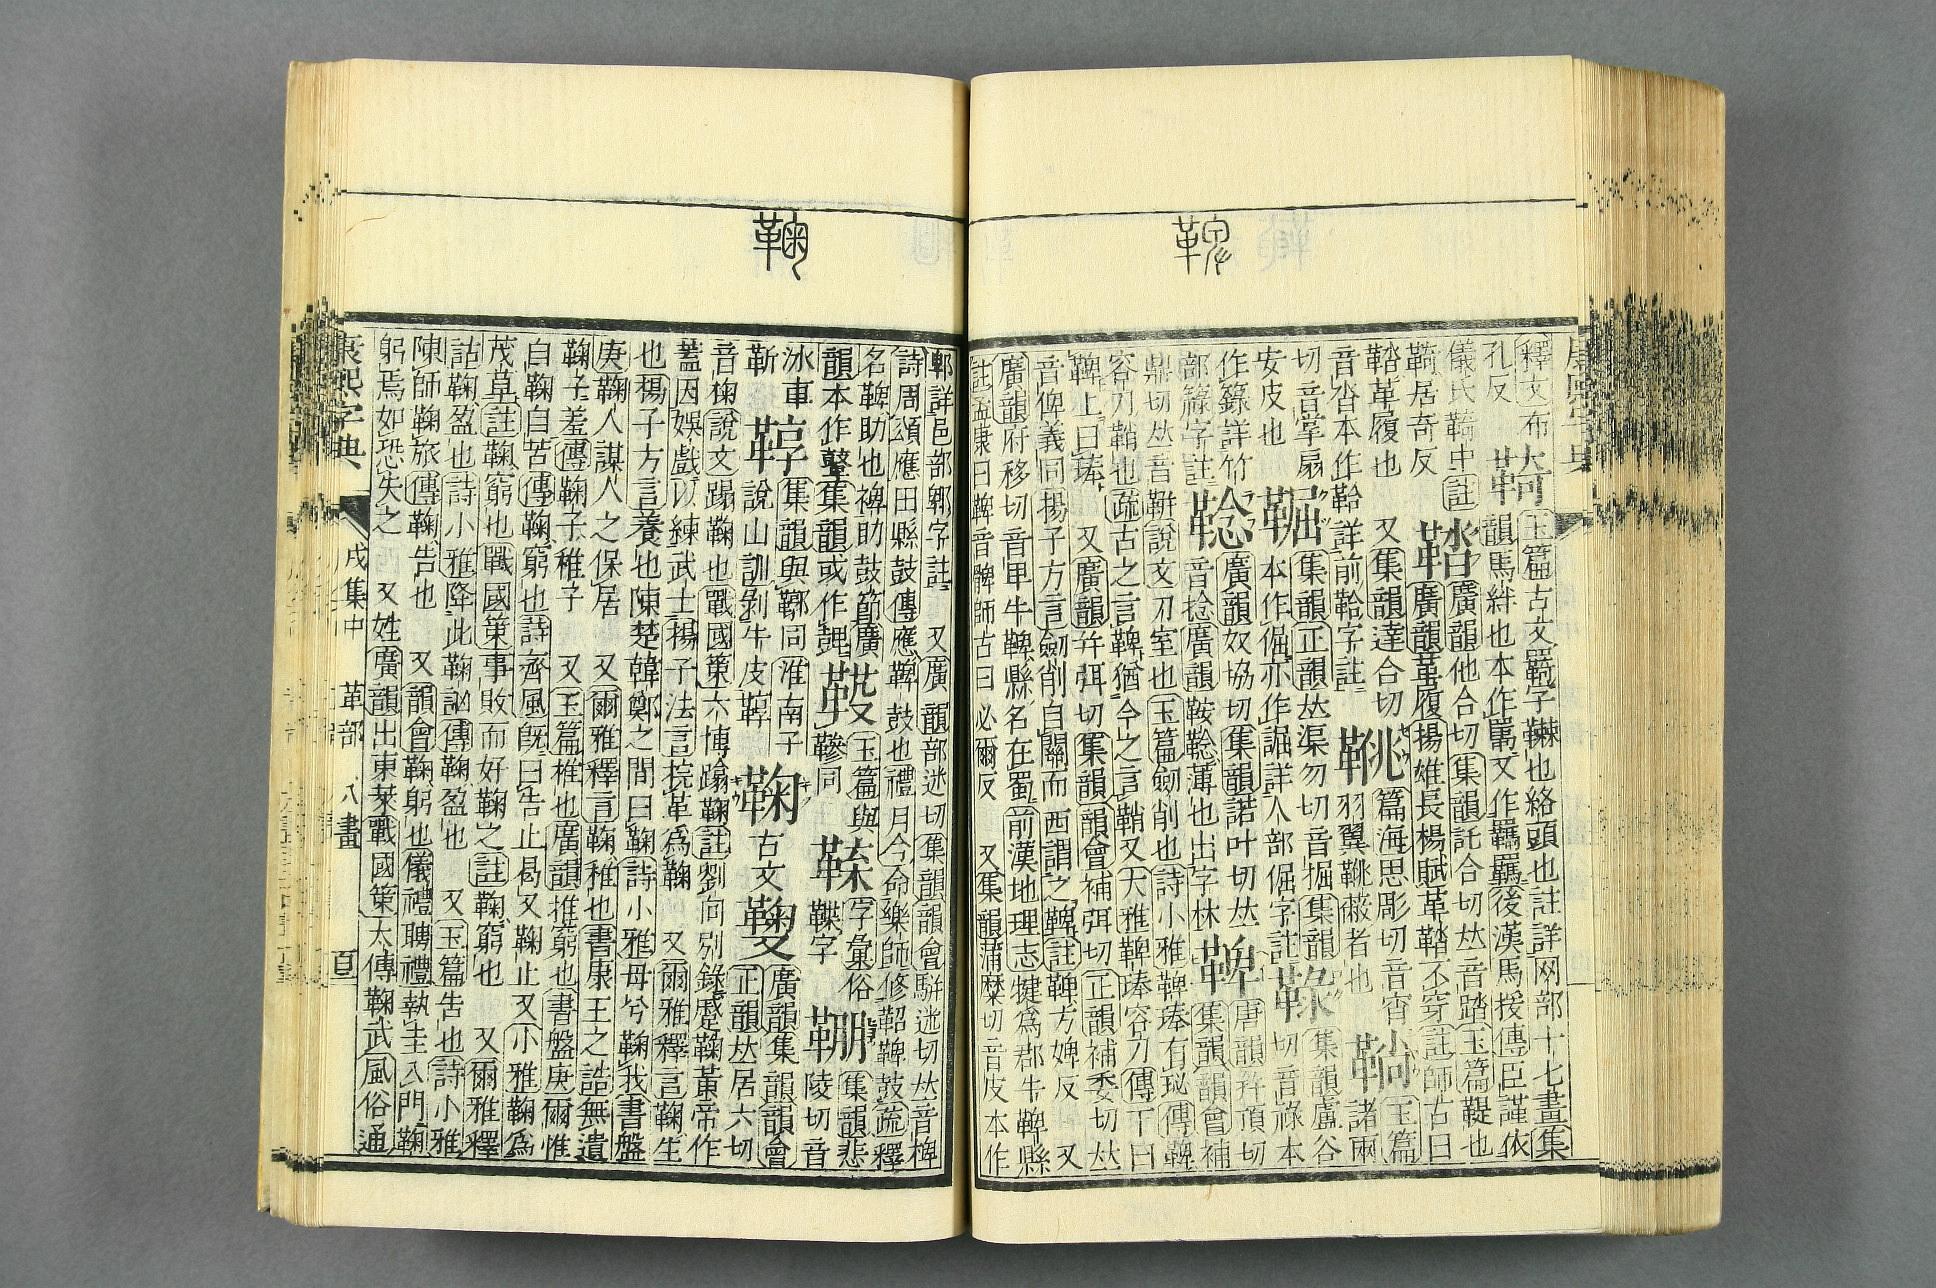 鞞
釋文布 玉篇古文羈字䩭也絡頭也註詳网部十七畫集
孔反 韻馬絆也本作䍴又作羈羈後漢馬援傳臣謹依
儀氏䩭中註 鞜 廣韻他合切集韻託合切𠀤音踏玉篇鞮也
䩭居奇反 廣韻革履揚雄長楊賦革鞜不穿註師古曰
鞜革履也 又集韻達合切 篇海思彫切音宵 玉篇
音沓本作鞈詳前鞈字註 羽翼蔽者也 諸兩
切音掌扇 集韻正韻𠀤渠勿切音掘集韻 集韻盧谷
安皮也 本作倔亦作誳詳人部倔字註 切音祿本
作簶詳竹 廣韻奴協切集韻諾叶切𠀤 鞞 唐韻幷頂切
部簶字註 音捻廣韻鞍薄也出字林 集韻韻會補
鼎切𠀤音鞞說文刀室也玉篇劒削也詩小雅鞞琫有珌傳鞞
容刀鞘也疏古之言鞞猶今之言鞘又大雅鞞琫容刀傳下曰
鞞上曰琫 又廣韻幷弭切集韻韻會補弭切正韻補委切𠀤
音俾義同揚子方言劒削自關而西謂之鞞註鞞方婢反 又
廣韻府移切音甲牛鞞縣名在蜀前漢地理志犍爲郡牛鞞縣
註孟康曰鞞音髀師古曰必爾反 又集韻蒲糜切音皮本作
鞠
郫詳邑部郫字註 又廣韻部迷切集韻韻會駢迷切𠀤音椑
詩周頌應田縣鼓傳應鞞鼓也禮月令命樂師修鞀鞞鼓疏釋
名鞞助也裨助鼓節廣 玉篇與 字彙俗 集韻悲
韻本作鼙集韻或作 同 鞢字 陵切音
冰車 鞟 集韻與鞹同淮南子 鞠 古文 廣韻集韻韻會
靳 說山訓剝牛皮鞟 正韻𠀤居六切
音椈說文蹋鞠也戰國策六博蹹鞠註劉向別錄蹵鞠黃帝作
蓋因娛戲以練武士揚子法言捖革爲鞠 又爾雅釋言鞠生
也揚子方言養也陳楚韓鄭之間曰鞠詩小雅母兮鞠我書盤
庚鞠人謀人之保居 又爾雅釋言鞠稚也書康王之誥無遺
鞠子羞傳鞠子稚子 又玉篇推也廣韻推窮也書盤庚爾惟
自鞠自苦傳鞠窮也詩齊風旣曰告止曷又鞠止又小雅鞠爲
茂草註鞠窮也戰國策事敗而好鞠之註鞠窮也 又爾雅釋
詁鞠盈也詩小雅降此鞠訩傳鞠盈也 又玉篇告也詩小雅
陳師鞠旅傳鞠告也 又韻會鞠躬也儀禮聘禮執圭入門鞠
躬焉如恐失之 又姓廣韻出東萊戰國策太傅鞠武風俗通
康熙字典 戌集中 革部 八畫